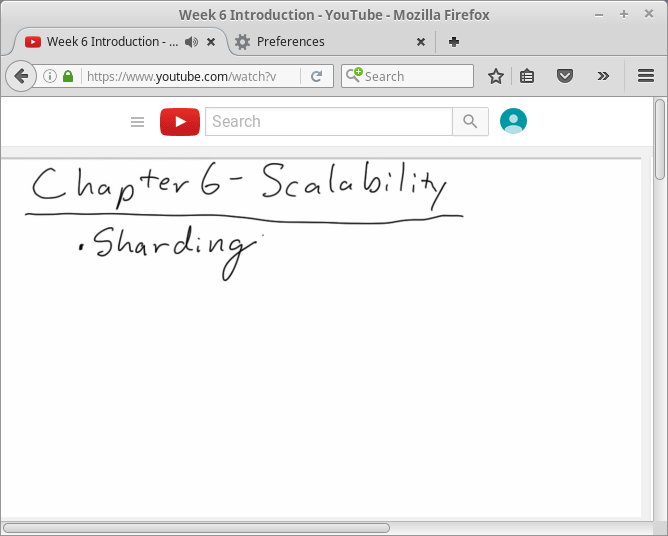 Week 6 Introduction - YouTube - Mozilla Firefox
Week 6 Introduction - ... Preferences
https://www.youtube.com/watch?v Search
Search
Chapter 6 - Scalability
. Sharding